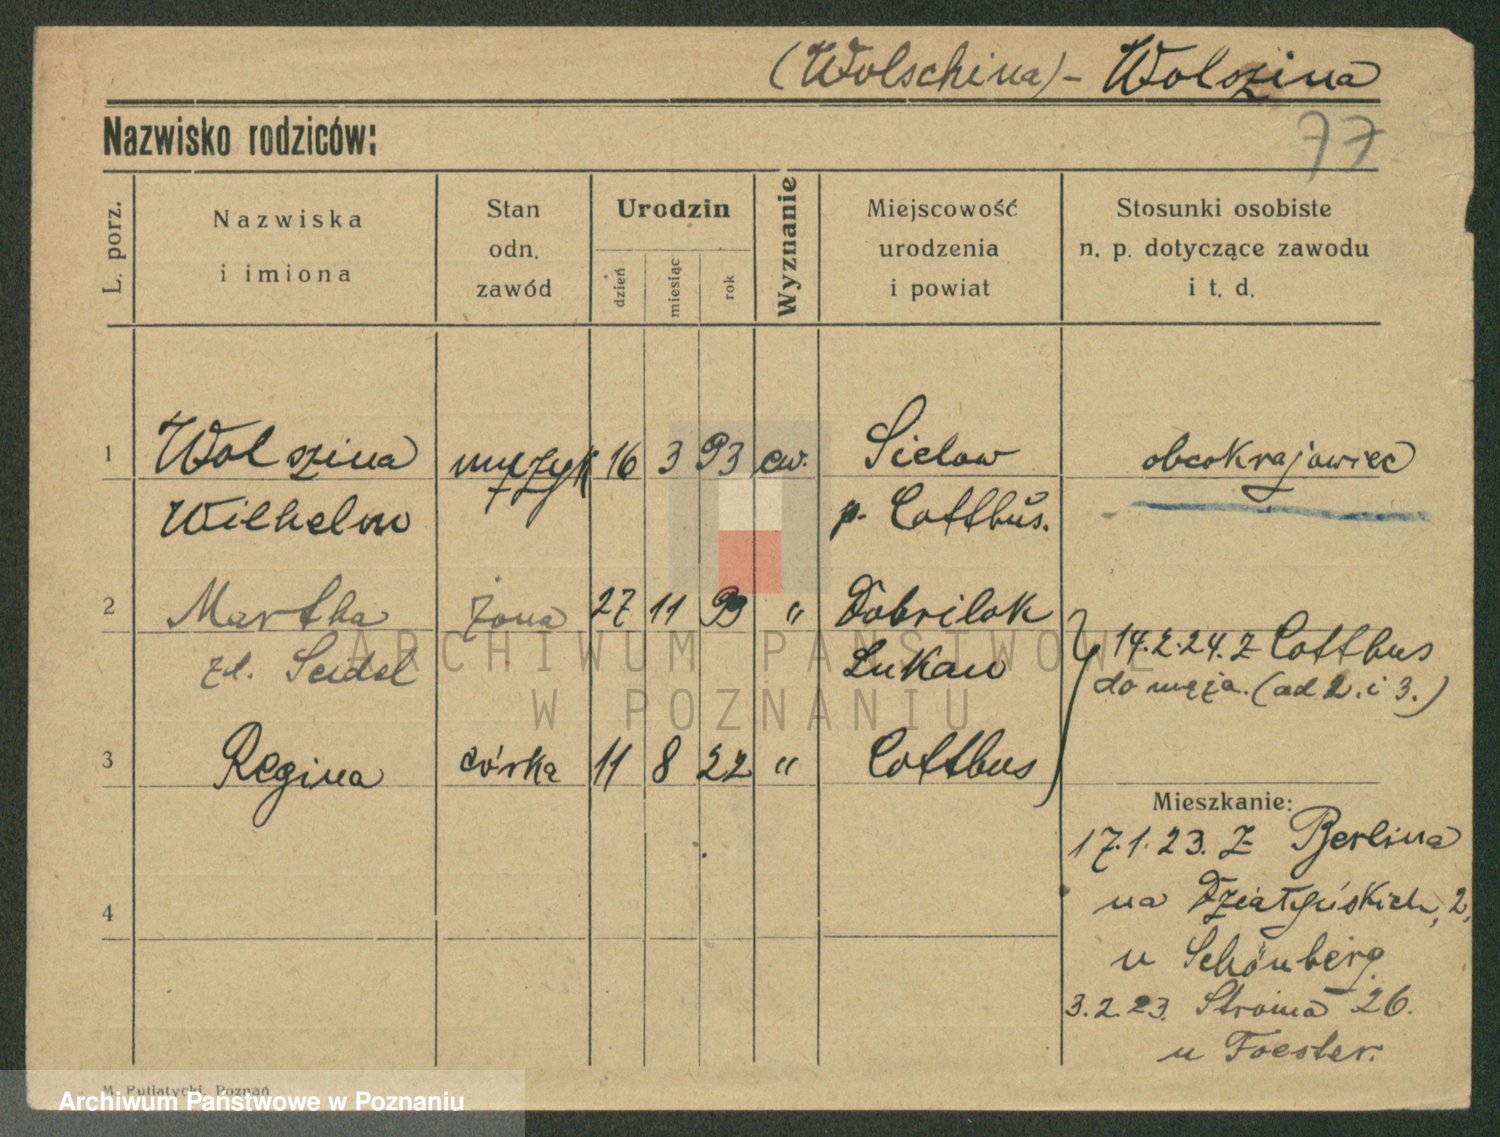 (Wolschina) - Wolszina
Nazwisko rodziców:
77
L. porz.
Nazwiska
i imiona
Stan
odn.
zawód
Urodzin
dzień
miesiąc
rok
Wyznanie
Miejscowość
urodzenia
i powiat
Stosunki osobiste
n. p. dotyczące zawodu
i t. d.
1 Wolszina muzyk 16 3 93 ew. Sielow obcokrajowiec
Wilhelm p. Cottbus.
2 Martha żona 27 11 99 " Dobrilok
zd. Seidel Lukau
14.2.24. z Cottbus
do męża. (ad 2. i 3.)
3 Regina córka 11 8 22 " Cottbus
Mieszkanie:
17.1.23. z Berlina
na Działyńskich, 2,
u Schönberg
3.2.23. Stroma 26.
u Foester.
4
M. Putiatycki, Poznań
ARCHIWUM PAŃSTWOWE
W POZNANIU
Archiwum Państwowe w Poznaniu